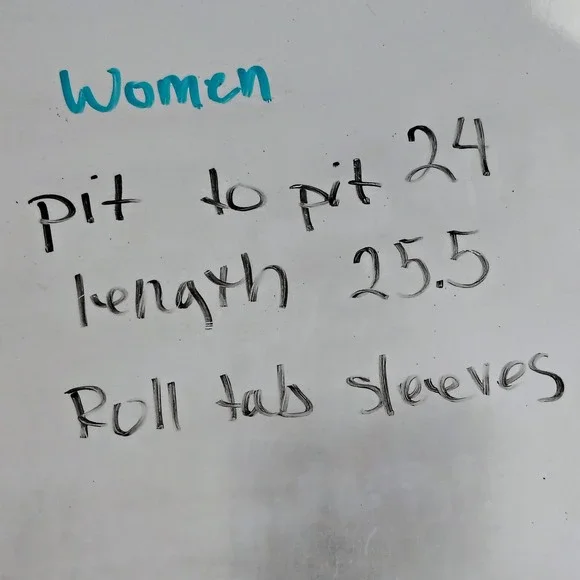 Women
pit to pit 24
length 25.5
Roll tab sleeves